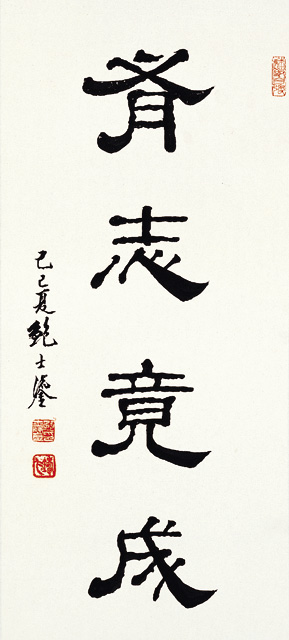 有志竟成
己巳夏鮑士